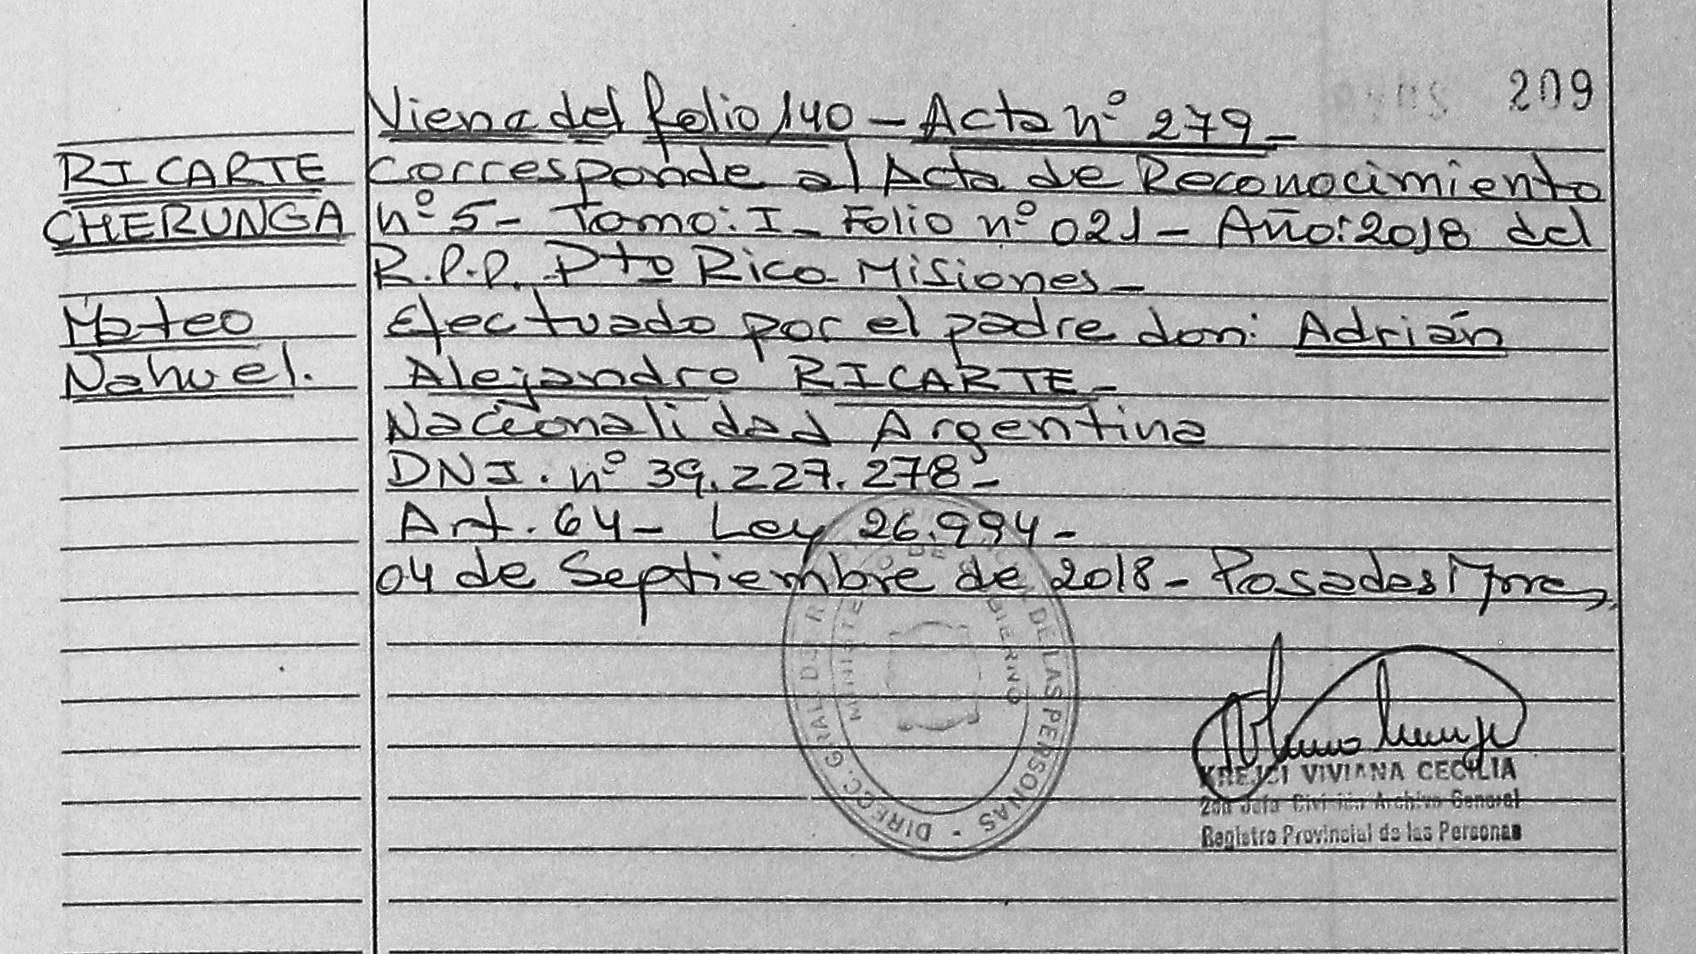 209
Viene del folio 140 - Acta nº 279 -
RICARTE
CHERUNGA
Mateo
Nahuel.
Corresponde al Acta de Reconocimiento
nº 5 - Tomo: I - Folio nº 021 - Año: 2018 del
R.P.P. Pto Rico Misiones -
Efectuado por el padre don: Adrián
Alejandro RICARTE -
Nacionalidad Argentina
DNI. nº 39.227.278 -
Art. 64 - Ley 26.994 -
04 de Septiembre de 2018 - Posadas
DIRECC. GRAL DE DE LAS PERSONAS
KREJCI VIVIANA CECILIA
2da Jefa División Archivo General
Registro Provincial de las Personas